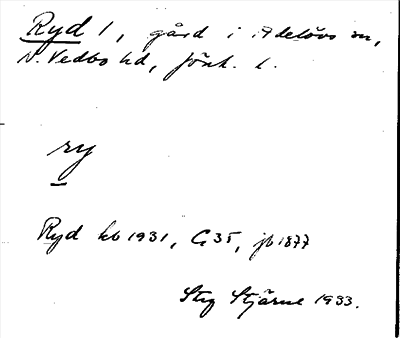 Ryd 1, gård i Adelövs sn,
N. Vedbo hd, Jönk. l.
ry
Ryd kb 1931, G 35, jb 1877
Stig Stjärne 1933.